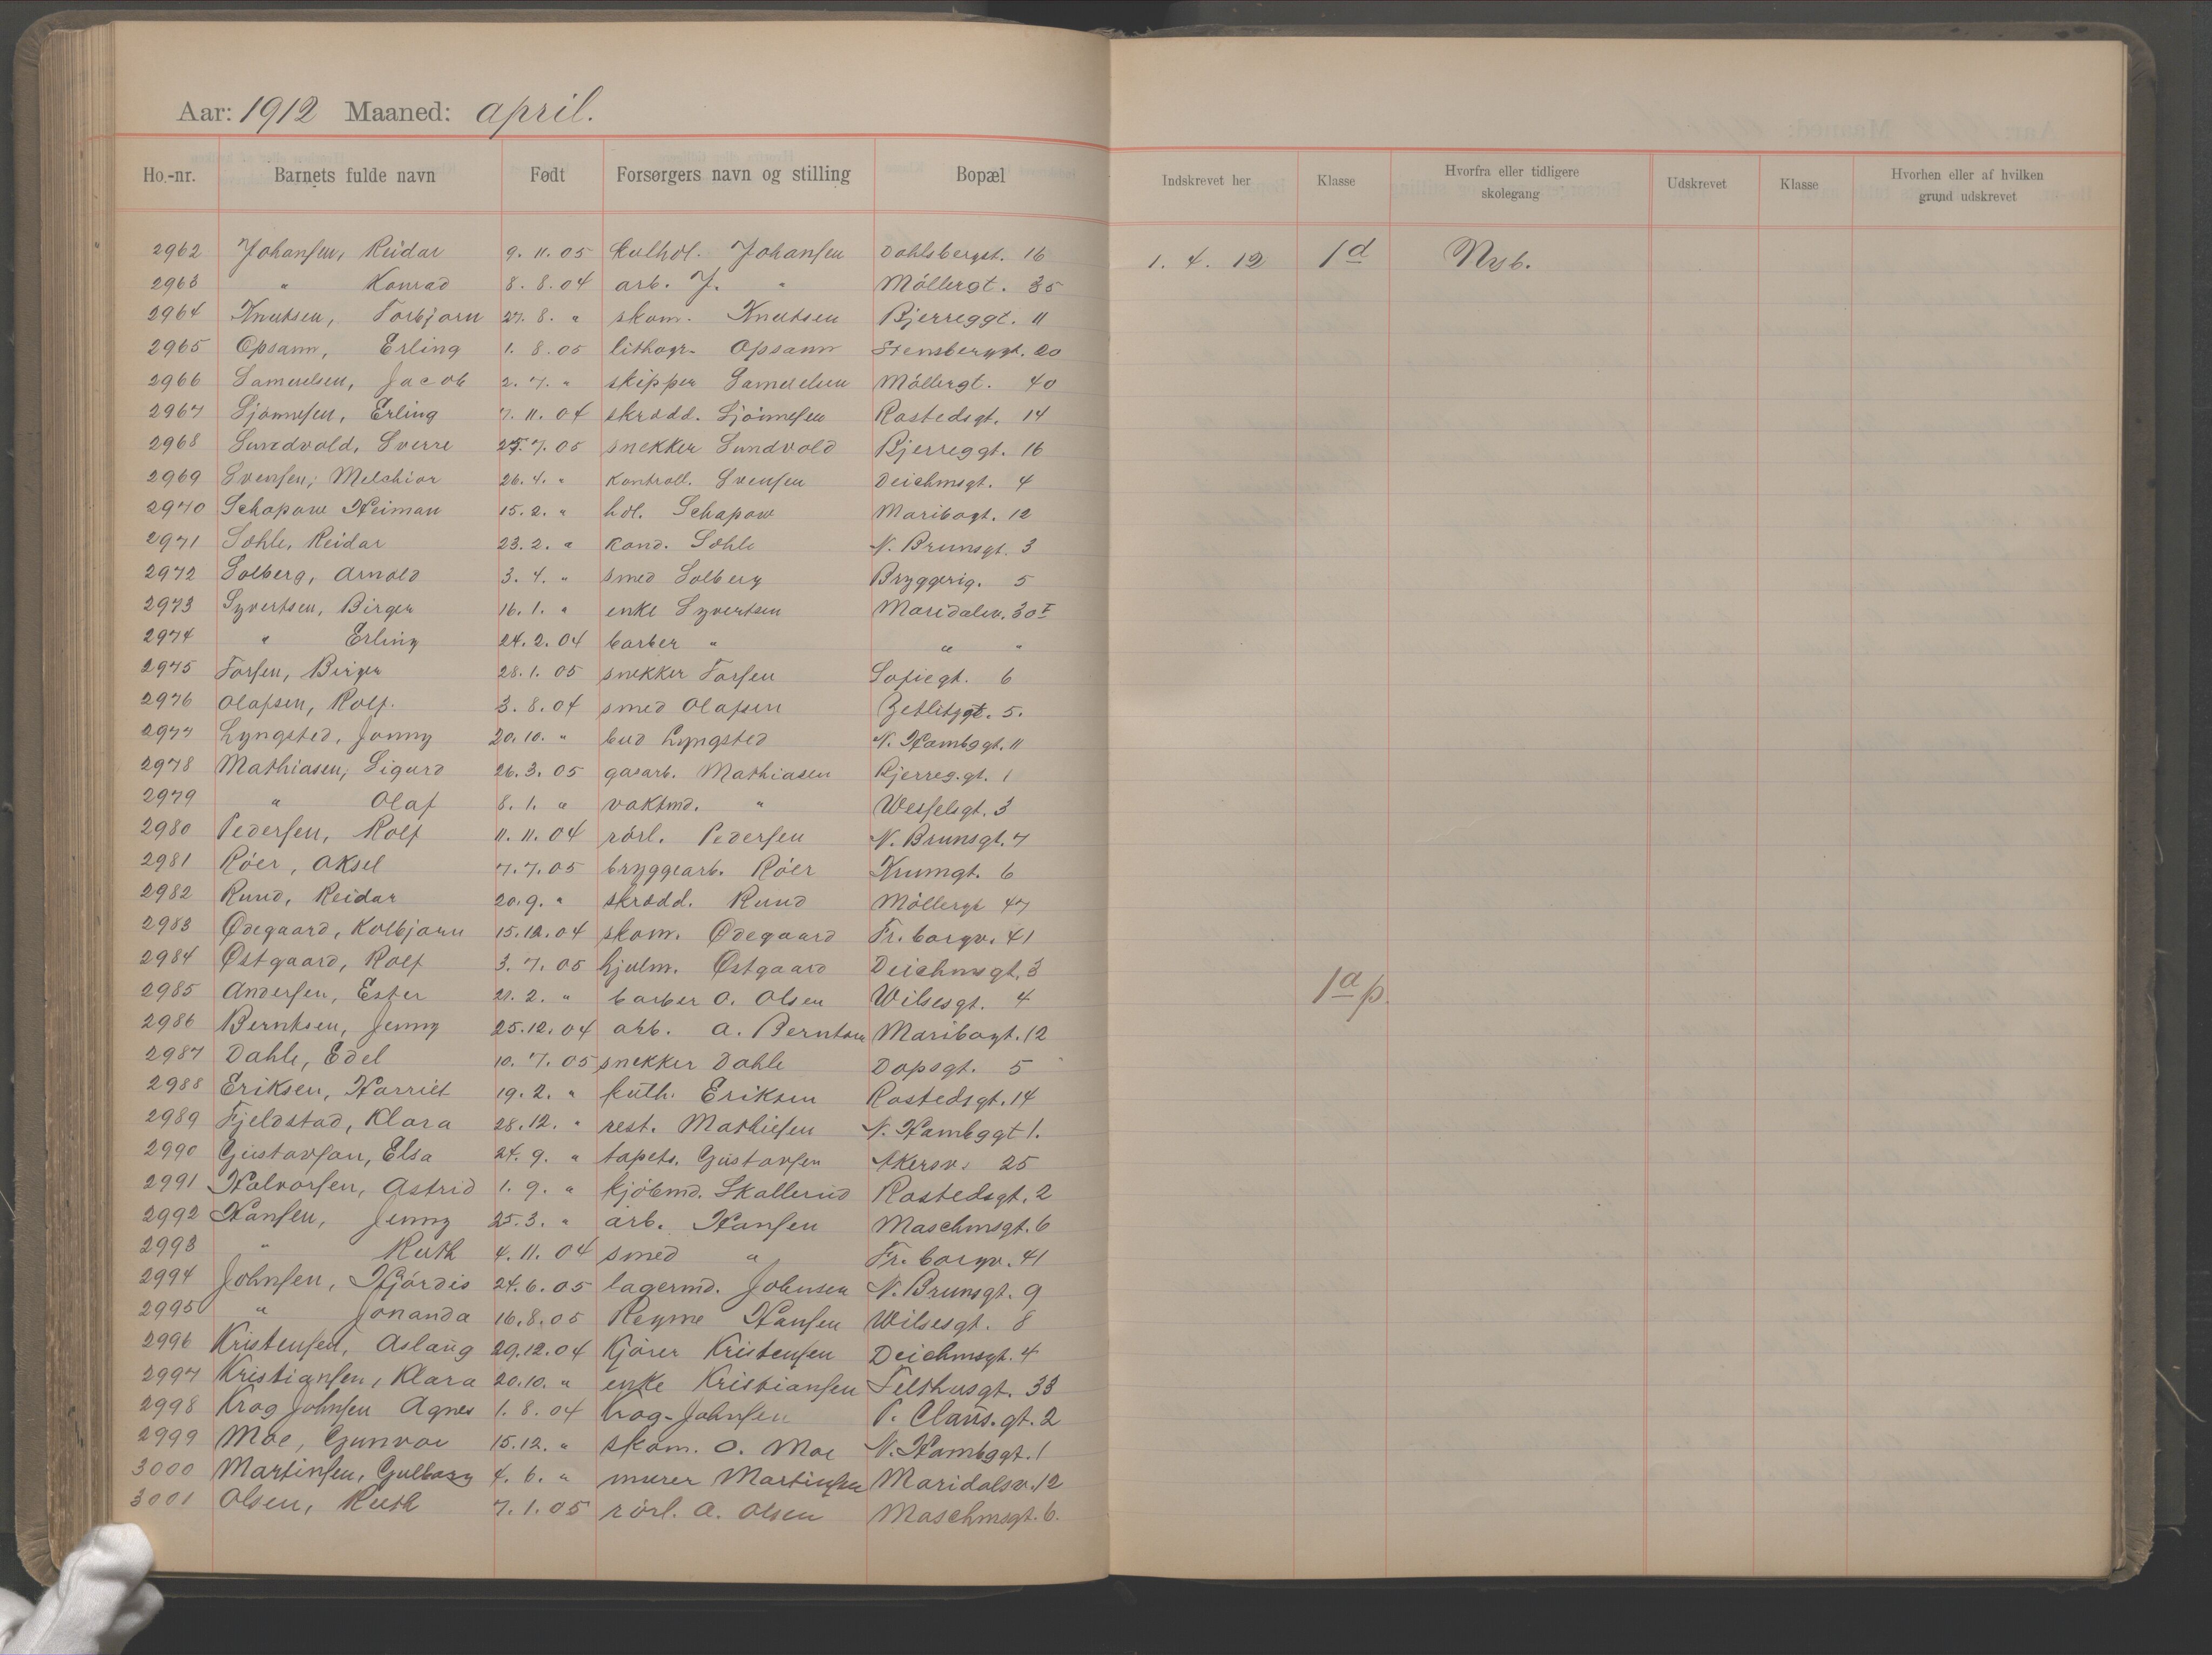 Aar: 1912 Maaned: april.
Ho.-nr. Barnets fulde navn Født Forsørgers navn og stilling Bopæl Indskrevet her Klasse Hvorfra eller tidligere skolegang Udskrevet Klasse Hvorhen eller af hvilken grund udskrevet
2962 Johansen, Reidar 9. 11. 05 kulhdl. Johansen Dahlsbergst. 16 1. 4. 12 1d Nyb.
2963 " Konrad 8. 8. 04 arb. J. " Möllergt. 35
2964 Knutsen, Torbjørn 27. 8. " skom. Knutsen Bjerreggt. 11
2965 Opsann, Erling 1. 8. 05 lithogr. Opsann Stensberggt. 20
2966 Samuelsen, Jacob 2. 7. " skipper Samuelsen Möllergt. 40
2967 Sjönnesen, Erling 7. 11. 04 skrædd. Sjönnesen Rostedsgt. 14
2968 Sundvold, Sverre 25. 7. 05 snekker Sundvold Bjerreggt. 16
2969 Svensen, Melchior 26. 4. " kontroll. Svensen Deichmsgt. 4
2970 Schapow Heiman 15. 2. " hdl. Schapow Maribogt. 12
2971 Sohle, Reidar 23. 2. " kand. Sohle N. Brunsgt. 3
2972 Solberg, Arnold 3. 4. " smed Solberg Bryggerig. 5
2973 Syvertsen, Birger 16. 1. " enke Syvertsen Maridalsv. 30 I
2974 " Erling 24. 2. 04 barber " " "
2975 Torsen, Birger 28. 1. 05 snekker Torsen Sofiegt. 6
2976 Olafsen, Rolf. 3. 8. 04 smed Olafsen Zetlitzgt. 5.
2977 Lyngsted, Jonny 20. 10. " bud Lyngsted N. Hambggt. 11
2978 Mathiasen, Sigurd 26. 3. 05 gasarb. Mathiasen Bjerreg.gt. 1
2979 " Olaf 8. 1. " vaktmd. " Wesselsgt. 3
2980 Pedersen, Rolf 11. 11. 04 rörl. Pedersen N. Brunsgt. 7
2981 Röer, Aksel 7. 7. 05 bryggearb. Röer Krumgt. 6
2982 Rund, Reidar 20. 9. " skrædd. Rund Möllergt 47
2983 Ødegaard, Kolbjørn 15. 12. 04 skom. Ødegaard Fr. borgv. 41
2984 Østgaard, Rolf 3. 7. 05 hjulm. Østgaard Deichmsgt. 3
2985 Andersen, Ester 21. 2. " barber O. Olsen Wilsesgt. 4 1a p.
2986 Berntsen, Jenny 25. 12. 04 arb. A. Berntsen Maribogt. 12
2987 Dahle, Edel 10. 7. 05 snekker Dahle Dopsgt. 5
2988 Eriksen, Harriet 19. 2. " Eriksen Rostedsgt. 14
2989 Fjeldstad, Klara 28. 12. " rest. Mathiesen N. Hambggt 1.
2990 Gustavson, Elsa 24. 9. " tapets. Gustavsen Akersv. 25
2991 Halvorsen, Astrid 1. 9. " kjöbmd. Skallerud Rostedsgt. 2
2992 Hansen, Jenny 25. 3. " arb. Hansen Maschmsgt. 6
2993 " Ruth 4. 11. 04 smed " Fr. borgv. 41
2994 Johnsen, Hjördis 24. 6. 05 lagermd. Johnsen N. Brunsgt. 9
2995 " Jonanda 16. 8. 05 Hansen Wilsesgt. 8
2996 Kristensen, Aslaug 29. 12. 04 Kjører Kristensen Deichmsgt. 4
2997 Kristiansen, Klara 20. 10. " enke Kristiansen Telthusgt. 33
2998 Krog Johnsen Agnes 1. 8. 04 Krog-Johnsen P. Claus. gt. 2
2999 Moe, Gunvor 15. 12. " skom. O. Moe N. Hambggt. 1
3000 Martinsen, Gulborg 4. 6. " murer Martinsen Maridalsv. 12
3001 Olsen, Ruth 7. 1. 05 rörl. A. Olsen Maschmsgt. 6.